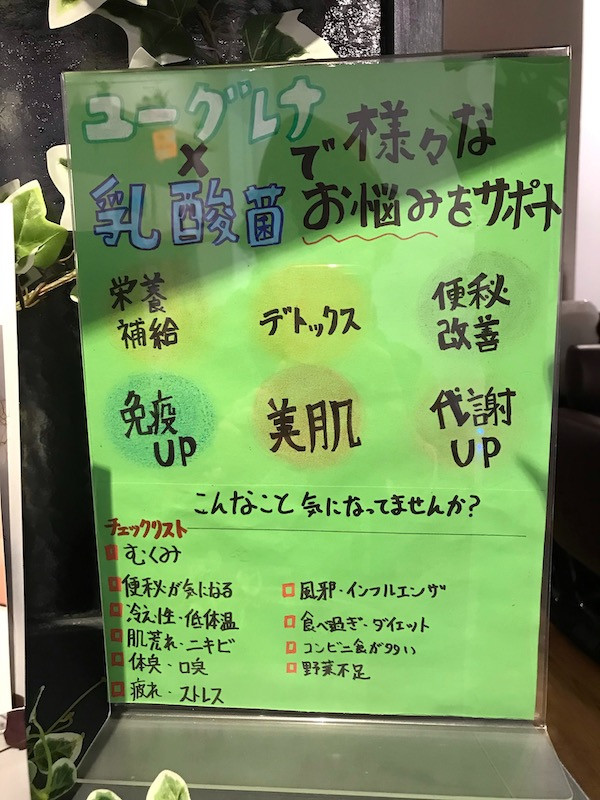 ユーグレナ
×
乳酸菌
で様々な
お悩みをサポート
栄養
補給
デトックス
便秘
改善
免疫
UP
美肌
代謝
UP
こんなこと気になってませんか?
チェックリスト
むくみ
便秘が気になる
冷え性・低体温
肌荒れ・ニキビ
体臭・口臭
疲れ・ストレス
風邪・インフルエンザ
食べ過ぎ・ダイエット
コンビニ食が多い
野菜不足